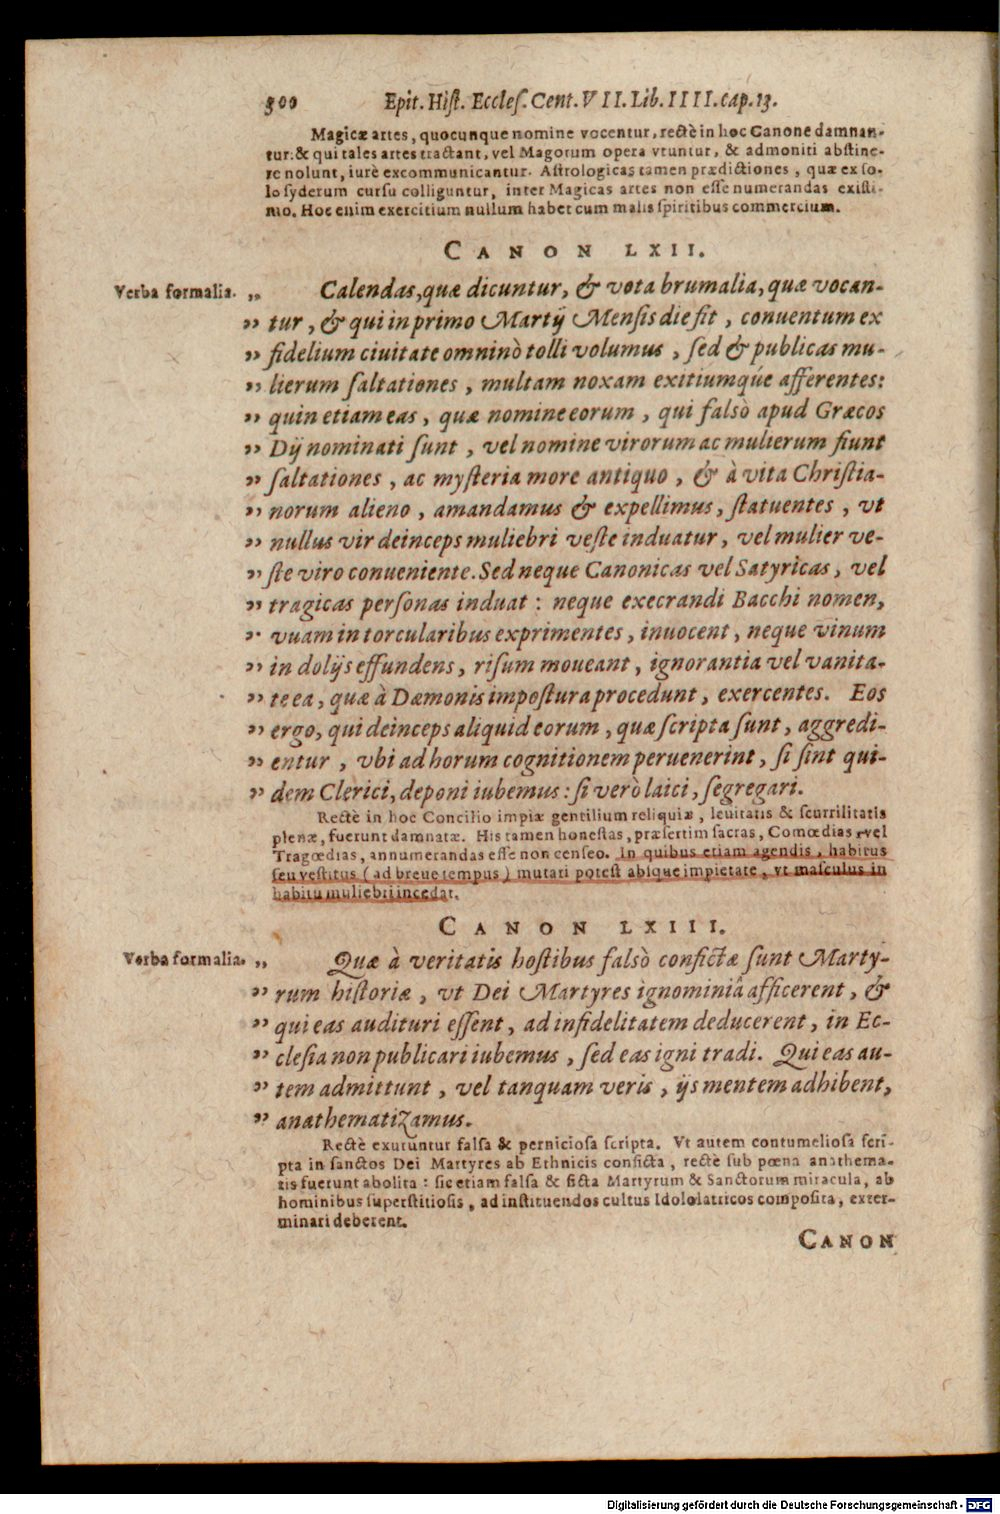 500 Epit. Hist. Eccles. Cent. VII. Lib. IIII. cap. 13.
Magicæ artes, quocunque nomine vocentur, rectè in hoc Canone damnan-
tur: & qui tales artes tractant, vel Magorum opera vtuntur, & admoniti abstine-
re nolunt, iurè excommunicantur. Astrologicas tamen prædictiones, quæ ex so-
lo syderum cursu colliguntur, inter Magicas artes non esse numerandas existi-
mo. Hoc enim exercitium nullum habet cum malis spiritibus commercium.
CANON LXII.
Verba formalia. „ Calendas, quæ dicuntur, & vota brumalia, quæ vocan-
„ tur, & qui in primo Martij Mensis die fit, conuentum ex
„ fidelium ciuitate omninò tolli volumus, sed & publicas mu-
„ lierum saltationes, multam noxam exitiumqúe afferentes:
„ quin etiam eas, quæ nomine eorum, qui falsò apud Græcos
„ Dij nominati sunt, vel nomine virorum ac mulierum fiunt
„ saltationes, ac mysteria more antiquo, & à vita Christia-
„ norum alieno, amandamus & expellimus, statuentes, vt
„ nullus vir deinceps muliebri veste induatur, vel mulier ve-
„ ste viro conueniente. Sed neque Canonicas vel Satyricas, vel
„ tragicas personas induat: neque execrandi Bacchi nomen,
„ vuam in torcularibus exprimentes, inuocent, neque vinum
„ in dolijs effundens, risum moueant, ignorantia vel vanita-
„ te ea, quæ à Dæmonis impostura procedunt, exercentes. Eos
„ ergo, qui deinceps aliquid eorum, quæ scripta sunt, aggredi-
„ entur, vbi ad horum cognitionem peruenerint, si sint qui-
„ dem Clerici, deponi iubemus: si verò laici, segregari.
Rectè in hoc Concilio impiæ gentilium reliquiæ, leuitatis & scurrilitatis
plenæ, fuerunt damnatæ. His tamen honestas, præsertim sacras, Comœdias vel
Tragœdias, annumerandas esse non censeo. In quibus etiam agendis, habitus
seu vestitus (ad breue tempus) mutari potest absque impietate, vt masculus in
habitu muliebri incedat.
CANON LXIII.
Verba formalia. „ Quæ à veritatis hostibus falsò confictæ sunt Marty-
„ rum historiæ, vt Dei Martyres ignominiâ afficerent, &
„ qui eas audituri essent, ad infidelitatem deducerent, in Ec-
„ clesia non publicari iubemus, sed eas igni tradi. Qui eas au-
„ tem admittunt, vel tanquam veris, ijs mentem adhibent,
„ anathematizamus.
Rectè exuruntur falsa & perniciosa scripta. Vt autem contumeliosa scri-
pta in sanctos Dei Martyres ab Ethnicis conficta, rectè sub pœna anathema-
tis fuerunt abolita: sic etiam falsa & ficta Martyrum & Sanctorum miracula, ab
hominibus superstitiosis, ad instituendos cultus Idololatricos composita, exter-
minari deberent.
CANON
Digitalisierung gefördert durch die Deutsche Forschungsgemeinschaft - DFG